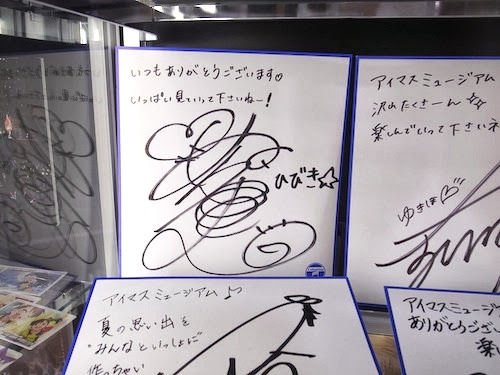 いつもありがとうございます♡
いっぱい見ていって下さいねー!
ひびき☆
アイマスミュージアム
沢山たくさーん☆☆
楽しんでいって下さいネ
ゆきほ♡
アイマスミュージアム♪
夏の思い出を
"みんなといっしょに"
作っちゃい
アイマスミュージアム
ありがとう
楽し